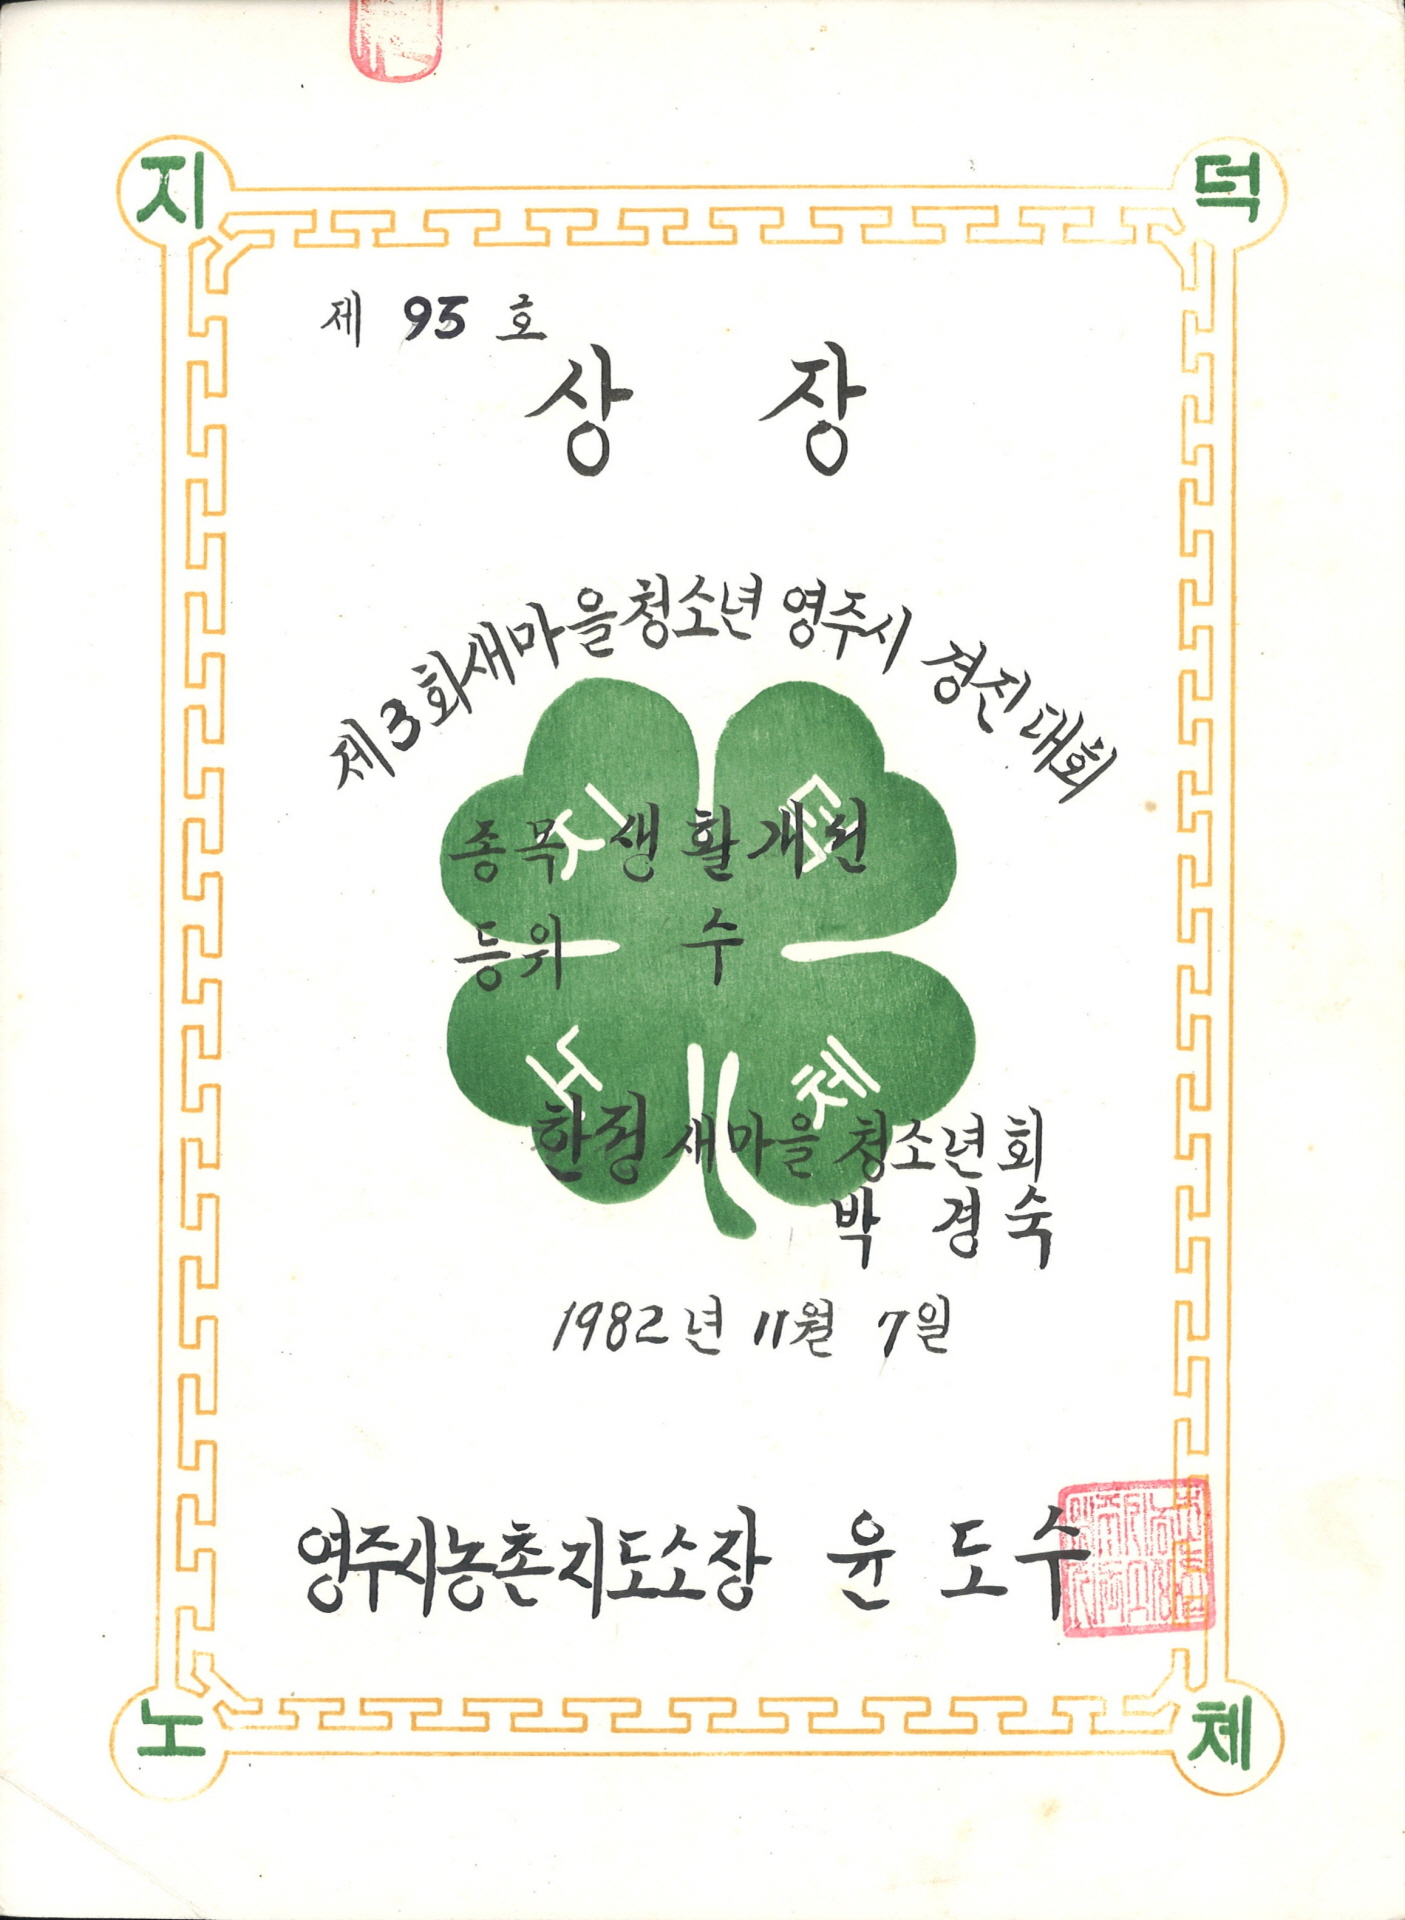 지 덕
제 93 호
상 장
제3회새마을청소년 영주시 경진대회
지 덕
종목 생활개선
등위 수
노 체
한정 새마을 청소년회
박 경숙
1982년 11월 7일
영주시농촌지도소장 윤 도 수
노 체